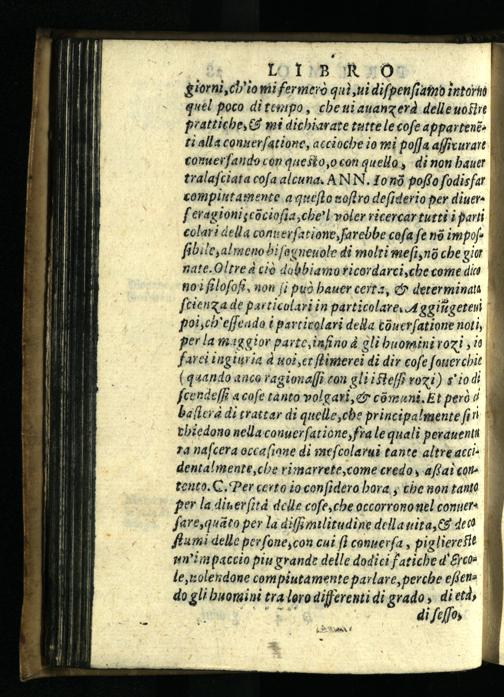 LIBRO
giorni, ch'io mi fermerò quì, ui dispensiamo intorno
quel poco di tempo, che ui auanzerà delle uostre
prattiche, & mi dichiarate tutte le cose appartenẽ-
ti alla conuersatione, accioche io mi possa assicurare
conuersando con questo, o con quello, di non hauer
tralasciata cosa alcuna. ANN. Io nõ posso sodisfar
compiutamente a questo uostro desiderio per diuer-
se ragioni; cõciosia, che'l voler ricercar tutti i parti
colari della conuersatione, sarebbe cosa se nõ impos-
sibile, almeno bisogneuole di molti mesi, nõ che gior
nate. Oltre à ciò dobbiamo ricordarci, che come dico
no i filosofi, non si può hauer certa, & determinata
scienza de particolari in particolare. Aggiũgeteui
poi, ch'essendo i particolari della cõuersatione noti,
per la maggior parte, infino à gli huomini rozi, io
farei ingiuria à uoi, et stimerei di dir cose souerchie
(quando anco ragionassi con gli istessi rozi) s'io di
scendessi a cose tanto volgari, & cõmuni. Et però ci
basterà di trattar di quelle, che principalmente si ri
chiedono nella conuersatione, fra le quali perauentu
ra nascera occasione di mescolarui tante altre acci-
dentalmente, che rimarrete, come credo, assai con-
tento. C. Per certo io considero hora, che non tanto
per la diuersità delle cose, che occorrono nel conuer-
sare, quãto per la dissimilitudine della uita, & de co
stumi delle persone, con cui si conuersa, pigliereste
un'impaccio piu grande delle dodici fatiche d'Erco-
le, uolendone compiutamente parlare, perche essen-
do gli huomini tra loro differenti di grado, di età,
di sesso,